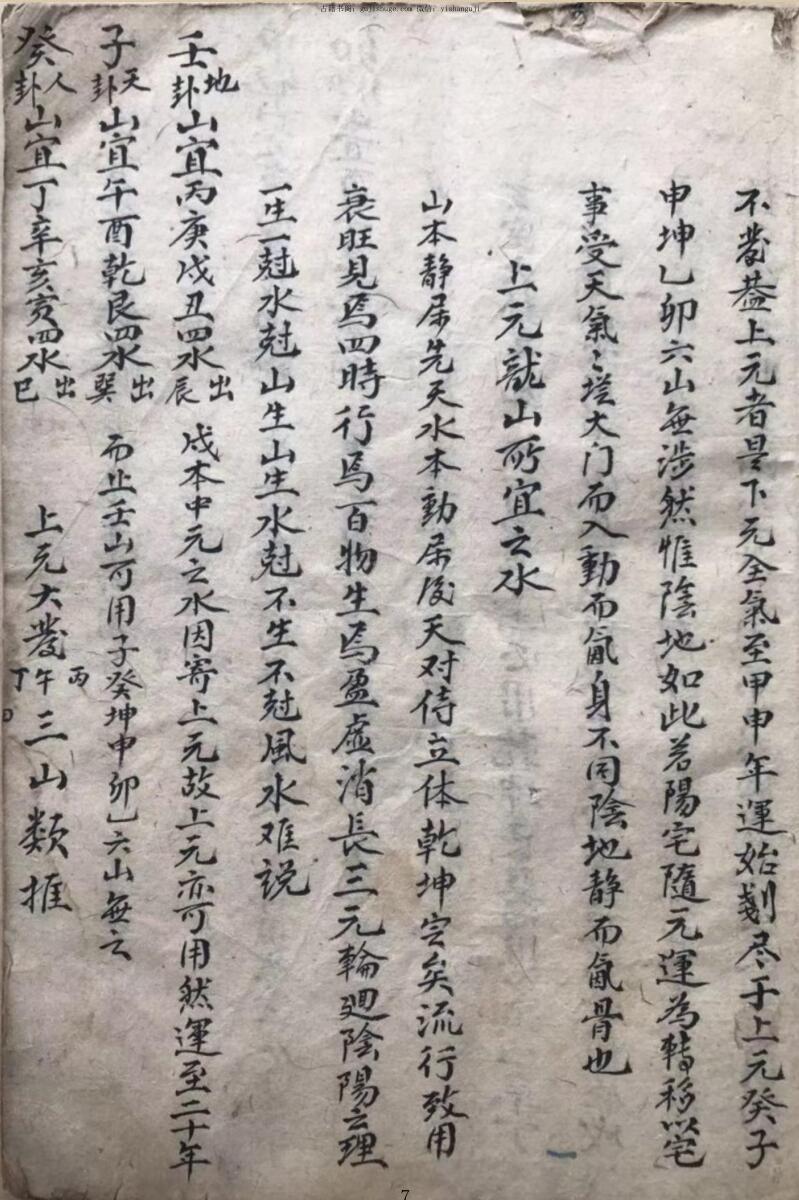 古籍书阁：gujishuge.com 微信：yishanguji
不發蓋上元者是下元全氣至甲申年運始剗尽于上元癸子
申坤乙卯六山無涉然惟陰地如此若陽宅隨元運為轉移以宅
事受天氣〻從大门而入動而氤身不同陰地静而氤骨也
上元龍山所宜之水
山本静屬先天水本動屬後天对待立体乾坤定矣流行致用
衰旺見焉四時行焉百物生焉盈虚消長三元輪廻陰陽之理
一生一尅水尅山生山生水尅不生不尅風水难説
壬地卦山宜丙庚戌丑四水出辰 戌本中元之水因寄上元故上元亦可用然運至二十年
子天卦山宜午酉乾艮四水出巽 而止壬山可用子癸坤申卯乙六山無云
癸人卦山宜丁辛亥寅四水出巳 上元大發丙午丁三山類推
7